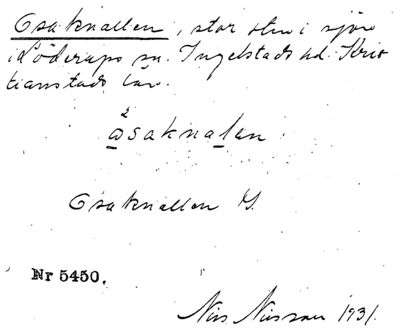 Osaknallen, stor sten i sjön
i Löderups sn. Ingelstads hd. Kris
tianstads län.
2
åsaknalen
Osaknallen G.
Nr 5450.
Nils Nilsson 1931.